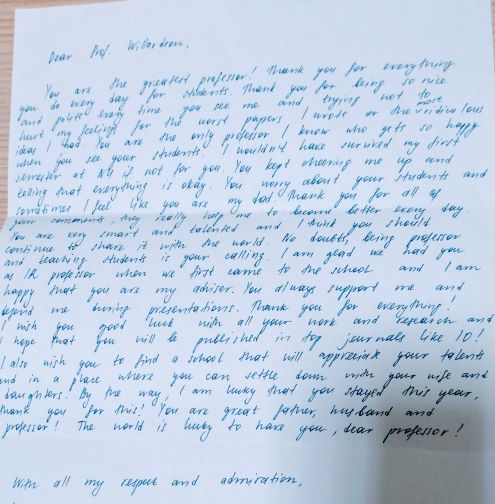 Dear Prof. Willardson,
You are the greatest professor! Thank you for everything
you do every day for students. Thank you for being so nice
and polite every time you see me and trying not to
hurt my feelings for the worst papers I wrote or the most ridiculous
ideas I had. You are the only professor I know who gets so happy
when you see your students. I wouldn't have survived my first
semester at NU if not for you. You kept cheering me up and
telling that everything is okay. You worry about your students and
sometimes I feel like you are my dad. Thank you for all of
your comments, they really help me to become better every day.
You are very smart and talented and I think you should
continue to share it with the world. No doubts, being professor
and teaching students is your calling. I am glad we had you
as IR professor when we first came to the school and I am
happy that you are my adviser. You always support me and
defend me during presentations. Thank you for everything!
I wish you good luck with all your work and research and
I hope that you will be published in top journals like IO!
I also wish you to find a school that will appreciate your talents
and in a place where you can settle down with your wife and
daughters. By the way, I am lucky that you stayed this year,
thank you for this! You are great father, husband and
professor! The world is lucky to have you, dear professor!
With all my respect and admiration,